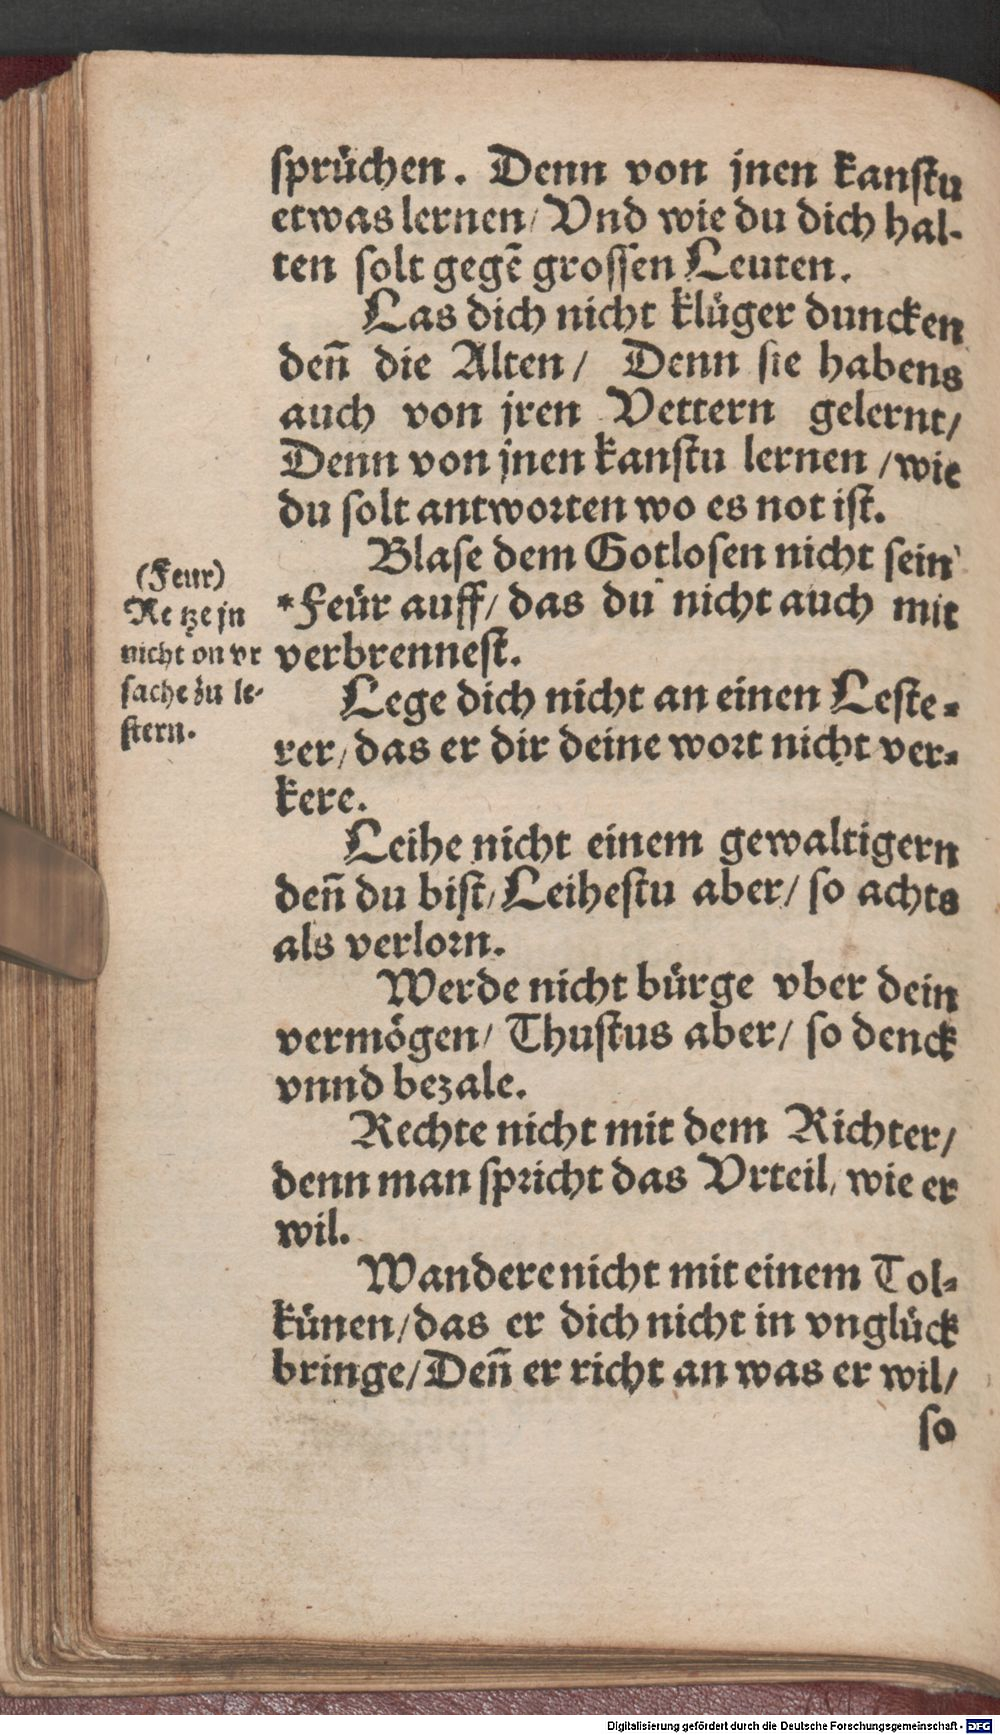 sprüchen. Denn von jnen kanstu
etwas lernen/ Vnd wie du dich hal-
ten solt gegẽ grossen Leuten.
Las dich nicht klüger duncken
deñ die Alten/ Denn sie habens
auch von jren Vettern gelernt/
Denn von jnen kanstu lernen/wie
du solt antworten wo es not ist.
Blase dem Gotlosen nicht sein
*Feür auff/ das du nicht auch mit
verbrennest.
(Feur)
Retze jn
nicht on vr
sache zu le-
stern.
Lege dich nicht an einen Leste-
rer/das er dir deine wort nicht ver-
kere.
Leihe nicht einem gewaltigern
deñ du bist/Leihestu aber/ so achts
als verlorn.
Werde nicht bürge vber dein
vermögen/ Thustus aber/ so denck
vnnd bezale.
Rechte nicht mit dem Richter/
denn man spricht das Vrteil/ wie er
wil.
Wandere nicht mit einem Tol-
künen/das er dich nicht in vnglück
bringe/Deñ er richt an was er wil/
so
Digitalisierung gefördert durch die Deutsche Forschungsgemeinschaft - DFG